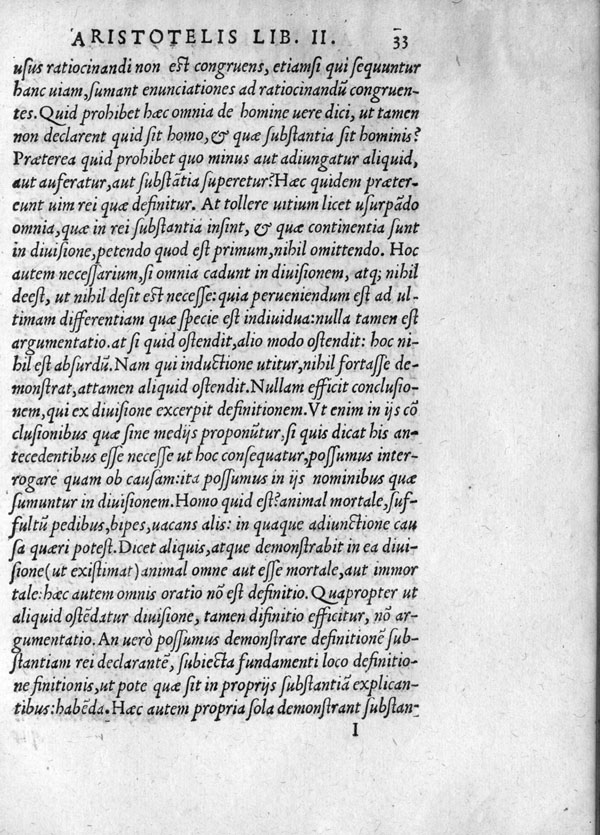 ARISTOTELIS LIB. II. 33
usus ratiocinandi non est congruens, etiamsi qui sequuntur
hanc uiam, sumant enunciationes ad ratiocinandū congruen-
tes. Quid prohibet hæc omnia de homine uere dici, ut tamen
non declarent quid sit homo, & quæ substantia sit hominis?
Præterea quid prohibet quo minus aut adiungatur aliquid,
aut auferatur, aut substātia superetur? Hæc quidem præter-
eunt uim rei quæ definitur. At tollere uitium licet usurpādo
omnia, quæ in rei substantia insint, & quæ continentia sunt
in diuisione, petendo quod est primum, nihil omittendo. Hoc
autem necessarium, si omnia cadunt in diuisionem, atq; nihil
deest, ut nihil desit est necesse: quia perueniendum est ad ul-
timam differentiam quæ specie est indiuidua: nulla tamen est
argumentatio. at si quid ostendit, alio modo ostendit: hoc ni-
hil est absurdū. Nam qui inductione utitur, nihil fortasse de-
monstrat, attamen aliquid ostendit. Nullam efficit conclusio-
nem, qui ex diuisione excerpit definitionem. Vt enim in ijs cō
clusionibus quæ sine medijs proponūtur, si quis dicat his an-
tecedentibus esse necesse ut hoc consequatur, possumus inter-
rogare quam ob causam: ita possumus in ijs nominibus quæ
sumuntur in diuisionem. Homo quid est? animal mortale, suf-
fultū pedibus, bipes, uacans alis: in quaque adiunctione cau
sa quæri potest. Dicet aliquis, atque demonstrabit in ea diui-
sione (ut existimat) animal omne aut esse mortale, aut immor
tale: hæc autem omnis oratio nō est definitio. Quapropter ut
aliquid ostēdatur diuisione, tamen difinitio efficitur, nō ar-
gumentatio. An uerò possumus demonstrare definitionē sub-
stantiam rei declarantē, subiecta fundamenti loco definitio-
ne finitionis, ut pote quæ sit in proprijs substantiā explican-
tibus: habēda. Hæc autem propria sola demonstrant substan-
I